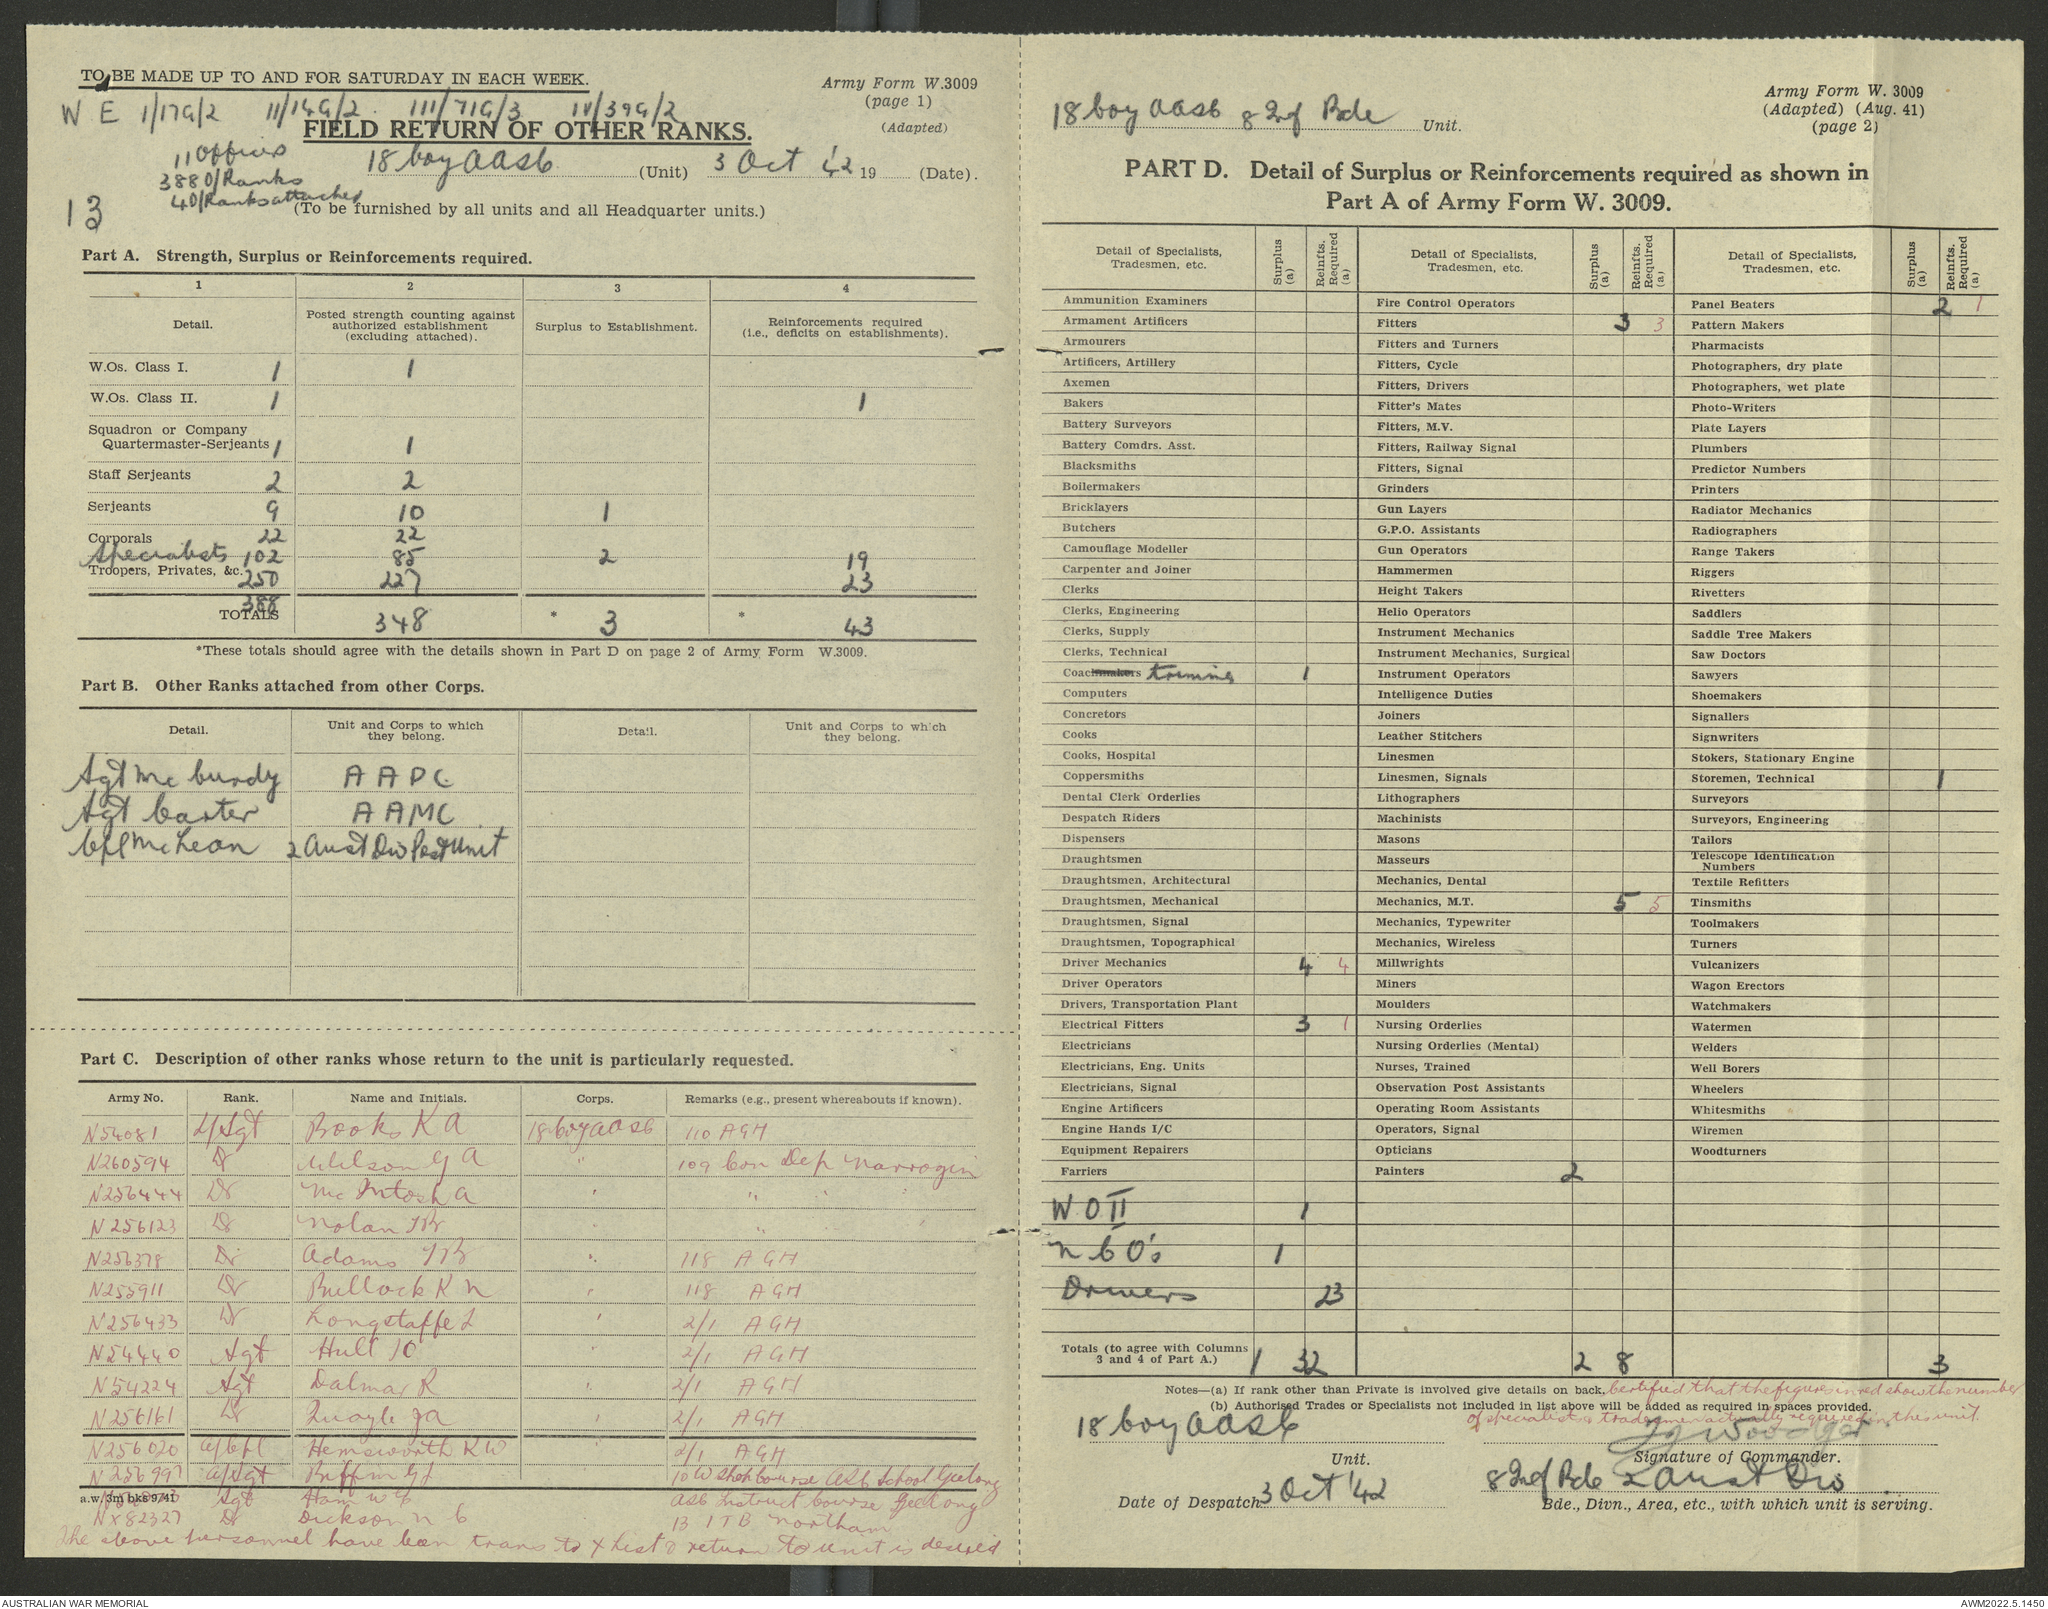 TO BE MADE UP TO AND FOR SATURDAY IN EACH WEEK.
Army Form W.3009
(page 1)
(Adapted)
W E 1/17G/2 11/14G/2 111/71G/3 IV/39G/2
FIELD RETURN OF OTHER RANKS.
11 Officers
388 O/Ranks
4 O/Ranks attached
13
18 Coy AASC (Unit) 3 Oct '42 19 (Date).
(To be furnished by all units and all Headquarter units.)
Part A. Strength, Surplus or Reinforcements required.
1 2 3 4
Detail. Posted strength counting against authorized establishment (excluding attached). Surplus to Establishment. Reinforcements required (i.e., deficits on establishments).
W.Os. Class I. 1 1
W.Os. Class II. 1 1
Squadron or Company
Quartermaster-Serjeants 1 1
Staff Serjeants 2 2
Serjeants 9 10 1
Corporals 22 22
Specialists 102 85 2 19
Troopers, Privates, &c. 250 227 23
388
TOTALS 348 * 3 * 43
*These totals should agree with the details shown in Part D on page 2 of Army Form W.3009.
Part B. Other Ranks attached from other Corps.
Detail. Unit and Corps to which they belong. Detail. Unit and Corps to which they belong.
Sgt McCurdy AAPC
Sgt Carter AAMC
Cpl McLean 2 Aust Div Post Unit
Part C. Description of other ranks whose return to the unit is particularly requested.
Army No. Rank. Name and Initials. Corps. Remarks (e.g., present whereabouts if known).
N54081 L/Sgt Books K A 18 Coy AASC 110 AGH
N260594 Dr Wilson G A " 109 Con Dep Narrogin
N256444 Dr McIntosh A " "
N256123 Dr Nolan " "
N256378 Dr Adams " 118 AGH
N255911 Dr Bullock K N " 118 AGH
N256433 Dr Longstaffe L " 2/1 AGH
N54440 Sgt Hull " 2/1 AGH
N54224 Sgt Dalmar R " 2/1 AGH
N256161 Dr Quayle J A " 2/1 AGH
N256020 A/Cpl Hemsworth K W " 2/1 AGH
N256997 A/Sgt Biffin 10 W Shop Course ASC School Geelong
a.w. 3m bks 9/41
Sgt Ham W C ASC Instruct Course Geelong
NX82327 Dr Dickson N C 13 ITB Northam
The above personnel have been trans to X List & return to unit is desired
18 Coy AASC 8 Inf Bde Unit.
Army Form W. 3009
(Adapted) (Aug. 41)
(page 2)
PART D. Detail of Surplus or Reinforcements required as shown in
Part A of Army Form W. 3009.
Detail of Specialists, Tradesmen, etc. Surplus (a) Reinfts. Required (a)
Ammunition Examiners
Armament Artificers
Armourers
Artificers, Artillery
Axemen
Bakers
Battery Surveyors
Battery Comdrs. Asst.
Blacksmiths
Boilermakers
Bricklayers
Butchers
Camouflage Modeller
Carpenter and Joiner
Clerks
Clerks, Engineering
Clerks, Supply
Clerks, Technical
Coachmakers trimmers 1
Computers
Concretors
Cooks
Cooks, Hospital
Coppersmiths
Dental Clerk Orderlies
Despatch Riders
Dispensers
Draughtsmen
Draughtsmen, Architectural
Draughtsmen, Mechanical
Draughtsmen, Signal
Draughtsmen, Topographical
Driver Mechanics 4 4
Driver Operators
Drivers, Transportation Plant
Electrical Fitters 3 1
Electricians
Electricians, Eng. Units
Electricians, Signal
Engine Artificers
Engine Hands I/C
Equipment Repairers
Farriers
W O II 1
N C O's 1
Drivers 23
Totals (to agree with Columns 3 and 4 of Part A.) 1 32
Detail of Specialists, Tradesmen, etc. Surplus (a) Reinfts. Required (a)
Fire Control Operators
Fitters 3 3
Fitters and Turners
Fitters, Cycle
Fitters, Drivers
Fitter's Mates
Fitters, M.V.
Fitters, Railway Signal
Fitters, Signal
Grinders
Gun Layers
G.P.O. Assistants
Gun Operators
Hammermen
Height Takers
Helio Operators
Instrument Mechanics
Instrument Mechanics, Surgical
Instrument Operators
Intelligence Duties
Joiners
Leather Stitchers
Linesmen
Linesmen, Signals
Lithographers
Machinists
Masons
Masseurs
Mechanics, Dental
Mechanics, M.T. 5 5
Mechanics, Typewriter
Mechanics, Wireless
Millwrights
Miners
Moulders
Nursing Orderlies
Nursing Orderlies (Mental)
Nurses, Trained
Observation Post Assistants
Operating Room Assistants
Operators, Signal
Opticians
Painters 2
2 8
Detail of Specialists, Tradesmen, etc. Surplus (a) Reinfts. Required (a)
Panel Beaters 2 1
Pattern Makers
Pharmacists
Photographers, dry plate
Photographers, wet plate
Photo-Writers
Plate Layers
Plumbers
Predictor Numbers
Printers
Radiator Mechanics
Radiographers
Range Takers
Riggers
Rivetters
Saddlers
Saddle Tree Makers
Saw Doctors
Sawyers
Shoemakers
Signallers
Signwriters
Stokers, Stationary Engine
Storemen, Technical 1
Surveyors
Surveyors, Engineering
Tailors
Telescope Identification Numbers
Textile Refitters
Tinsmiths
Toolmakers
Turners
Vulcanizers
Wagon Erectors
Watchmakers
Watermen
Welders
Well Borers
Wheelers
Whitesmiths
Wiremen
Woodturners
3
Notes—(a) If rank other than Private is involved give details on back.
(b) Authorised Trades or Specialists not included in list above will be added as required in spaces provided.
Certified that the figures in red show the number
of specialist & tradesmen actually required in the unit.
18 Coy AASC
Unit.
Signature of Commander.
Date of Despatch 3 Oct '42
8 Inf Bde 2 Aust Div
Bde., Divn., Area, etc., with which unit is serving.
AUSTRALIAN WAR MEMORIAL
AWM2022.5.1450